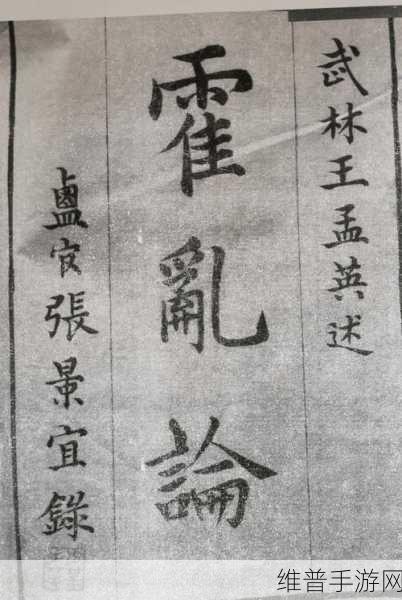 武林王孟英述
霍亂論
鹽官張景宜錄
维普手游网